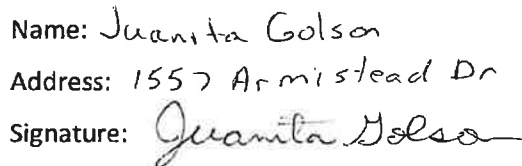 Name: Juanita Golson
Address: 1557 Armistead Dr
Signature: Juanita Golson